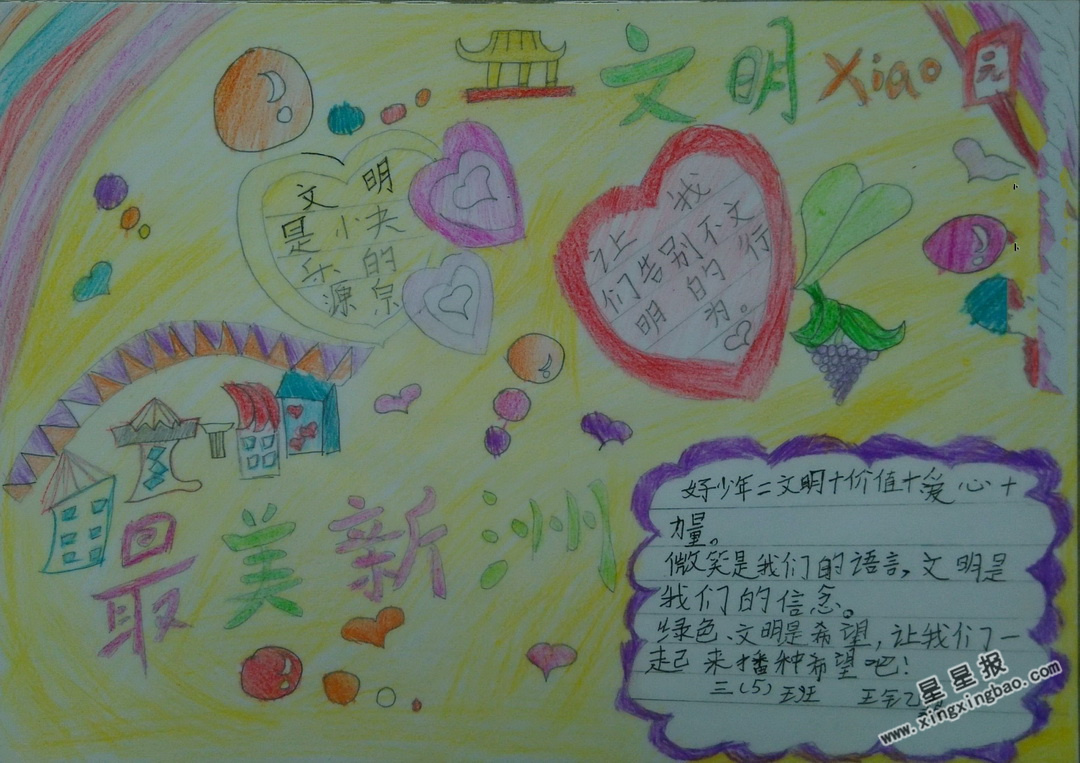 文明Xiao园
文明
是小夬
乐的
源泉
让我
们告别不文
明的行
为。
最美新洲
好少年=文明+价值+爱心+
力量。
微笑是我们的语言,文明是
我们的信念。
绿色、文明是希望,让我们一
起来播种希望吧!
三(5)班
星星报
www.xingxingbao.com